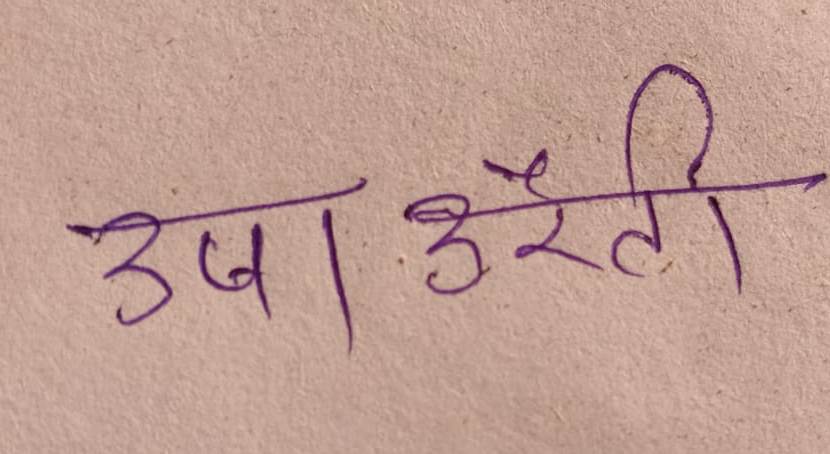 उषा उरैती